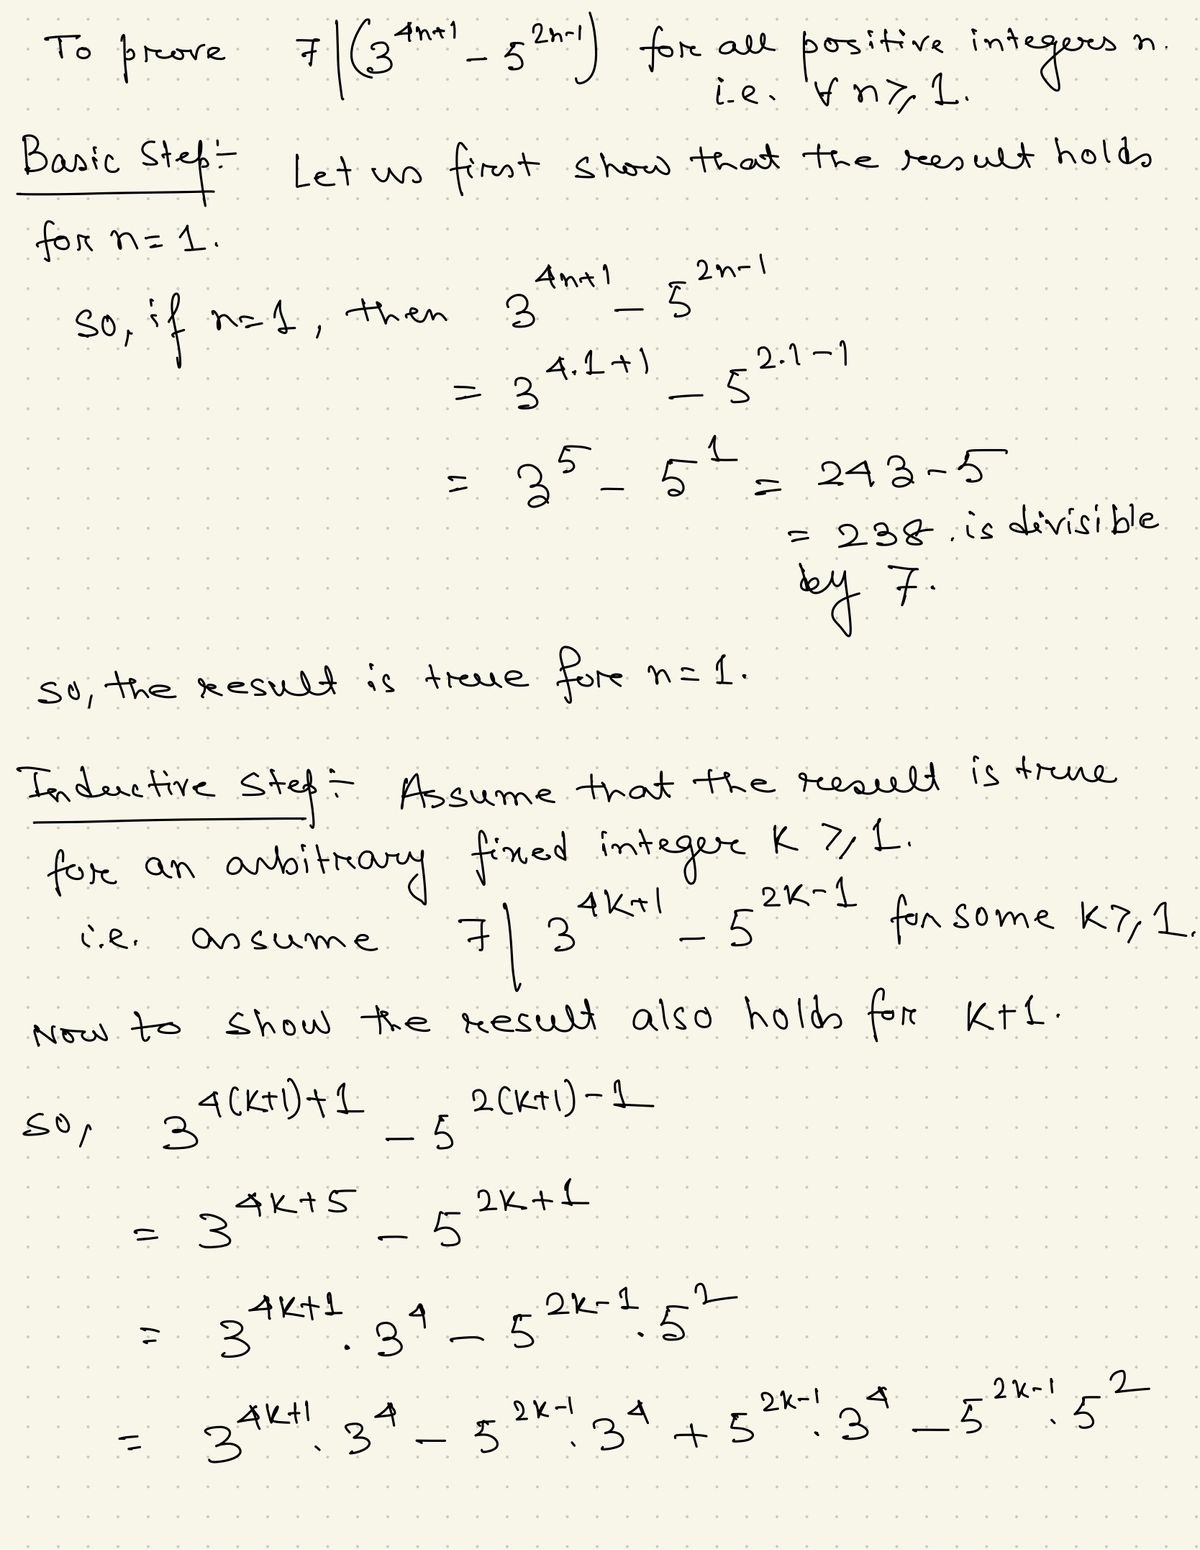 To prove 7|(3^{4n+1} - 5^{2n-1}) for all positive integers n.
i.e. ∀ n ≥ 1.
Basic Step:- Let us first show that the result holds
for n = 1.
So, if n=1, then 3^{4n+1} - 5^{2n-1}
= 3^{4.1+1} - 5^{2.1-1}
= 3^5 - 5^1 = 243 - 5
= 238. is divisible
by 7.
So, the result is true for n = 1.
Inductive Step:- Assume that the result is true
for an arbitrary fixed integer K ≥ 1.
i.e. assume 7 | 3^{4K+1} - 5^{2K-1} for some K ≥ 1.
Now to show the result also holds for K+1.
So, 3^{4(K+1)+1} - 5^{2(K+1)-1}
= 3^{4K+5} - 5^{2K+1}
= 3^{4K+1} . 3^4 - 5^{2K-1} . 5^2
= 3^{4K+1} . 3^4 - 5^{2K-1} . 3^4 + 5^{2K-1} . 3^4 - 5^{2K-1} . 5^2